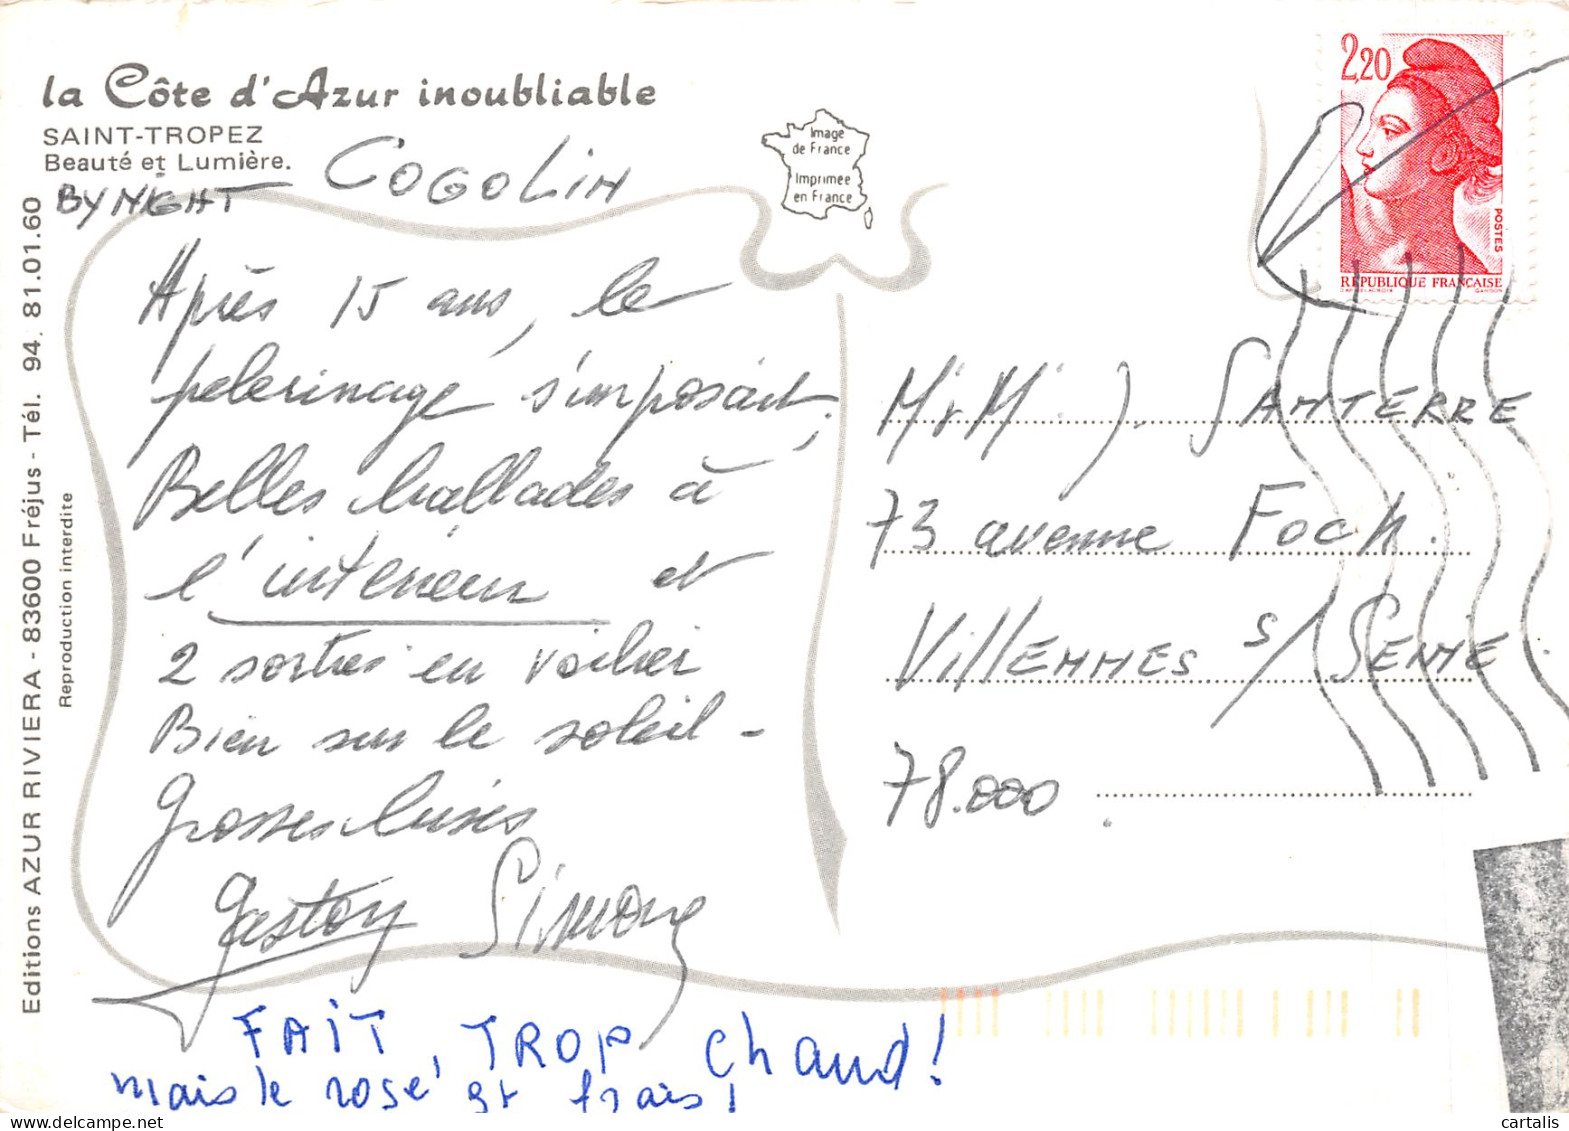 la Côte d'Azur inoubliable
SAINT-TROPEZ
Beauté et Lumière.
BY NIGHT
COGOLIN
Image
de France
Imprimée
en France
2,20
POSTES
REPUBLIQUE FRANÇAISE
GANDON
Après 15 ans, le
pelerinage s'imposait.
Belles ballades à
l'intérieur et
2 sorties en voilier
Bien sur le soleil -
Grosses bises
Gaston Simone
FAIT TROP chaud!
mais le rosé est frais!
M & M J. SANTERRE
73 avenue Foch.
VillENNES s/ SEINE
78.000
Editions AZUR RIVIERA - 83600 Fréjus - Tél. 94. 81.01.60
Reproduction interdite
cartalis